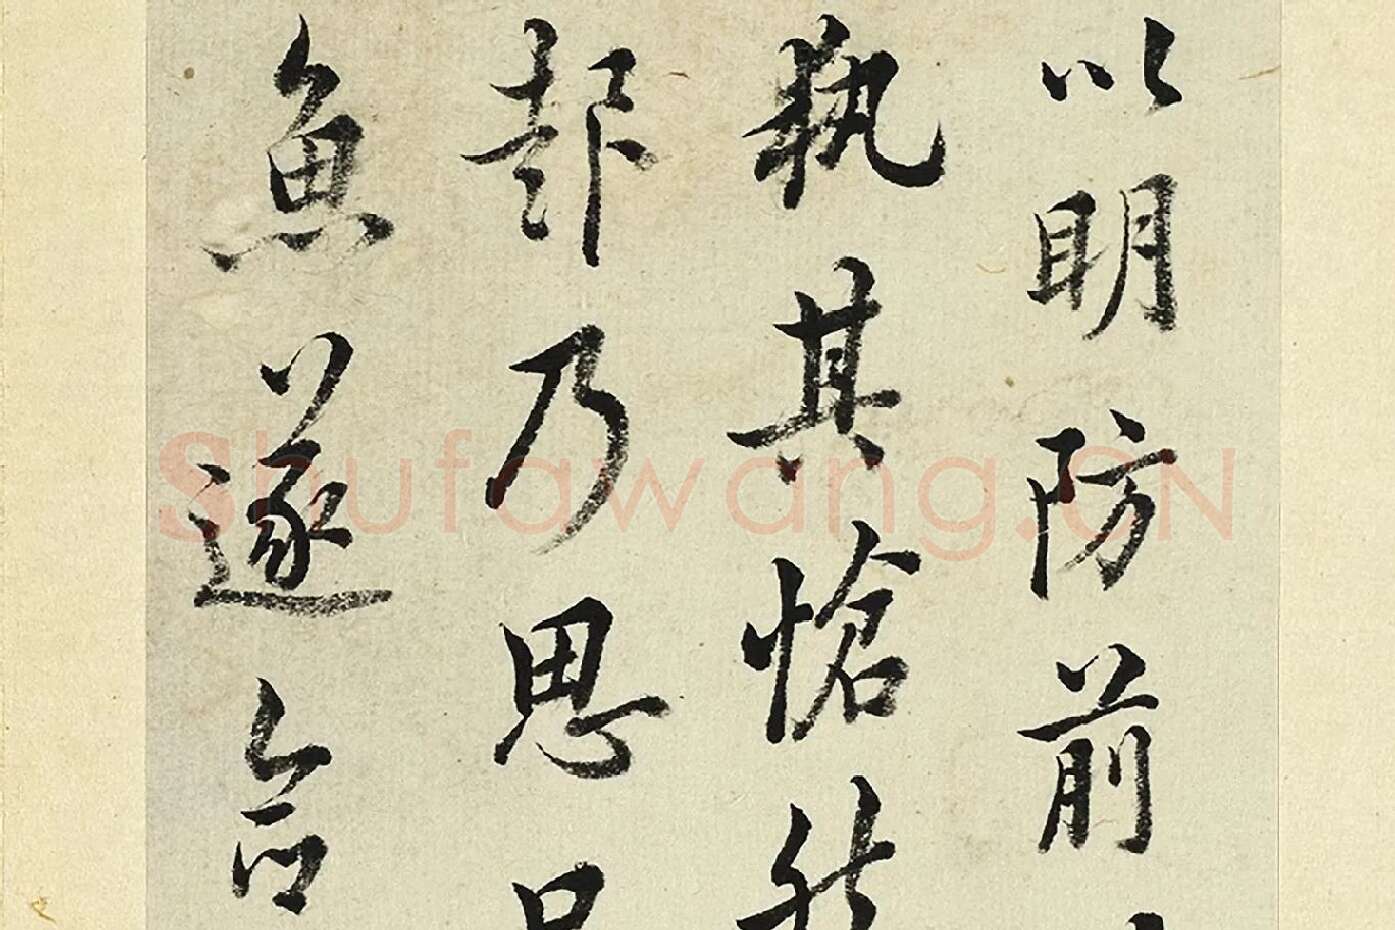 以明防前
執其愴
乃思
魚遂命
Shufawang.CN